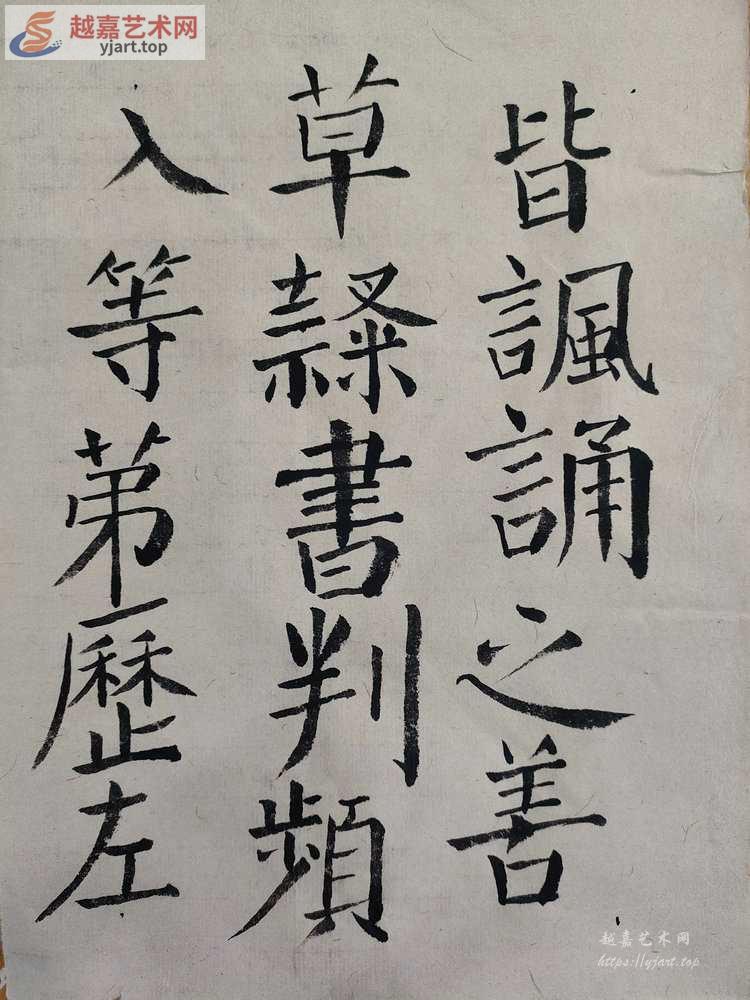 越嘉艺术网
yjart.top
皆諷誦之善
草隸書判頻
入等苐歷左
越嘉艺术网
https://yjart.top